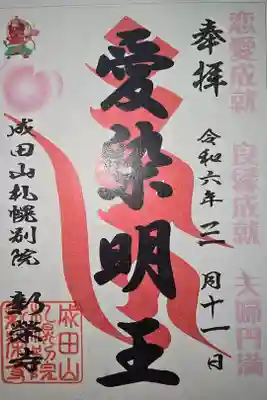 恋愛成就 良縁成就 夫婦円満
奉拝
令和六年 月十一日
愛染明王
成田山札幌別院 新栄寺
成田山